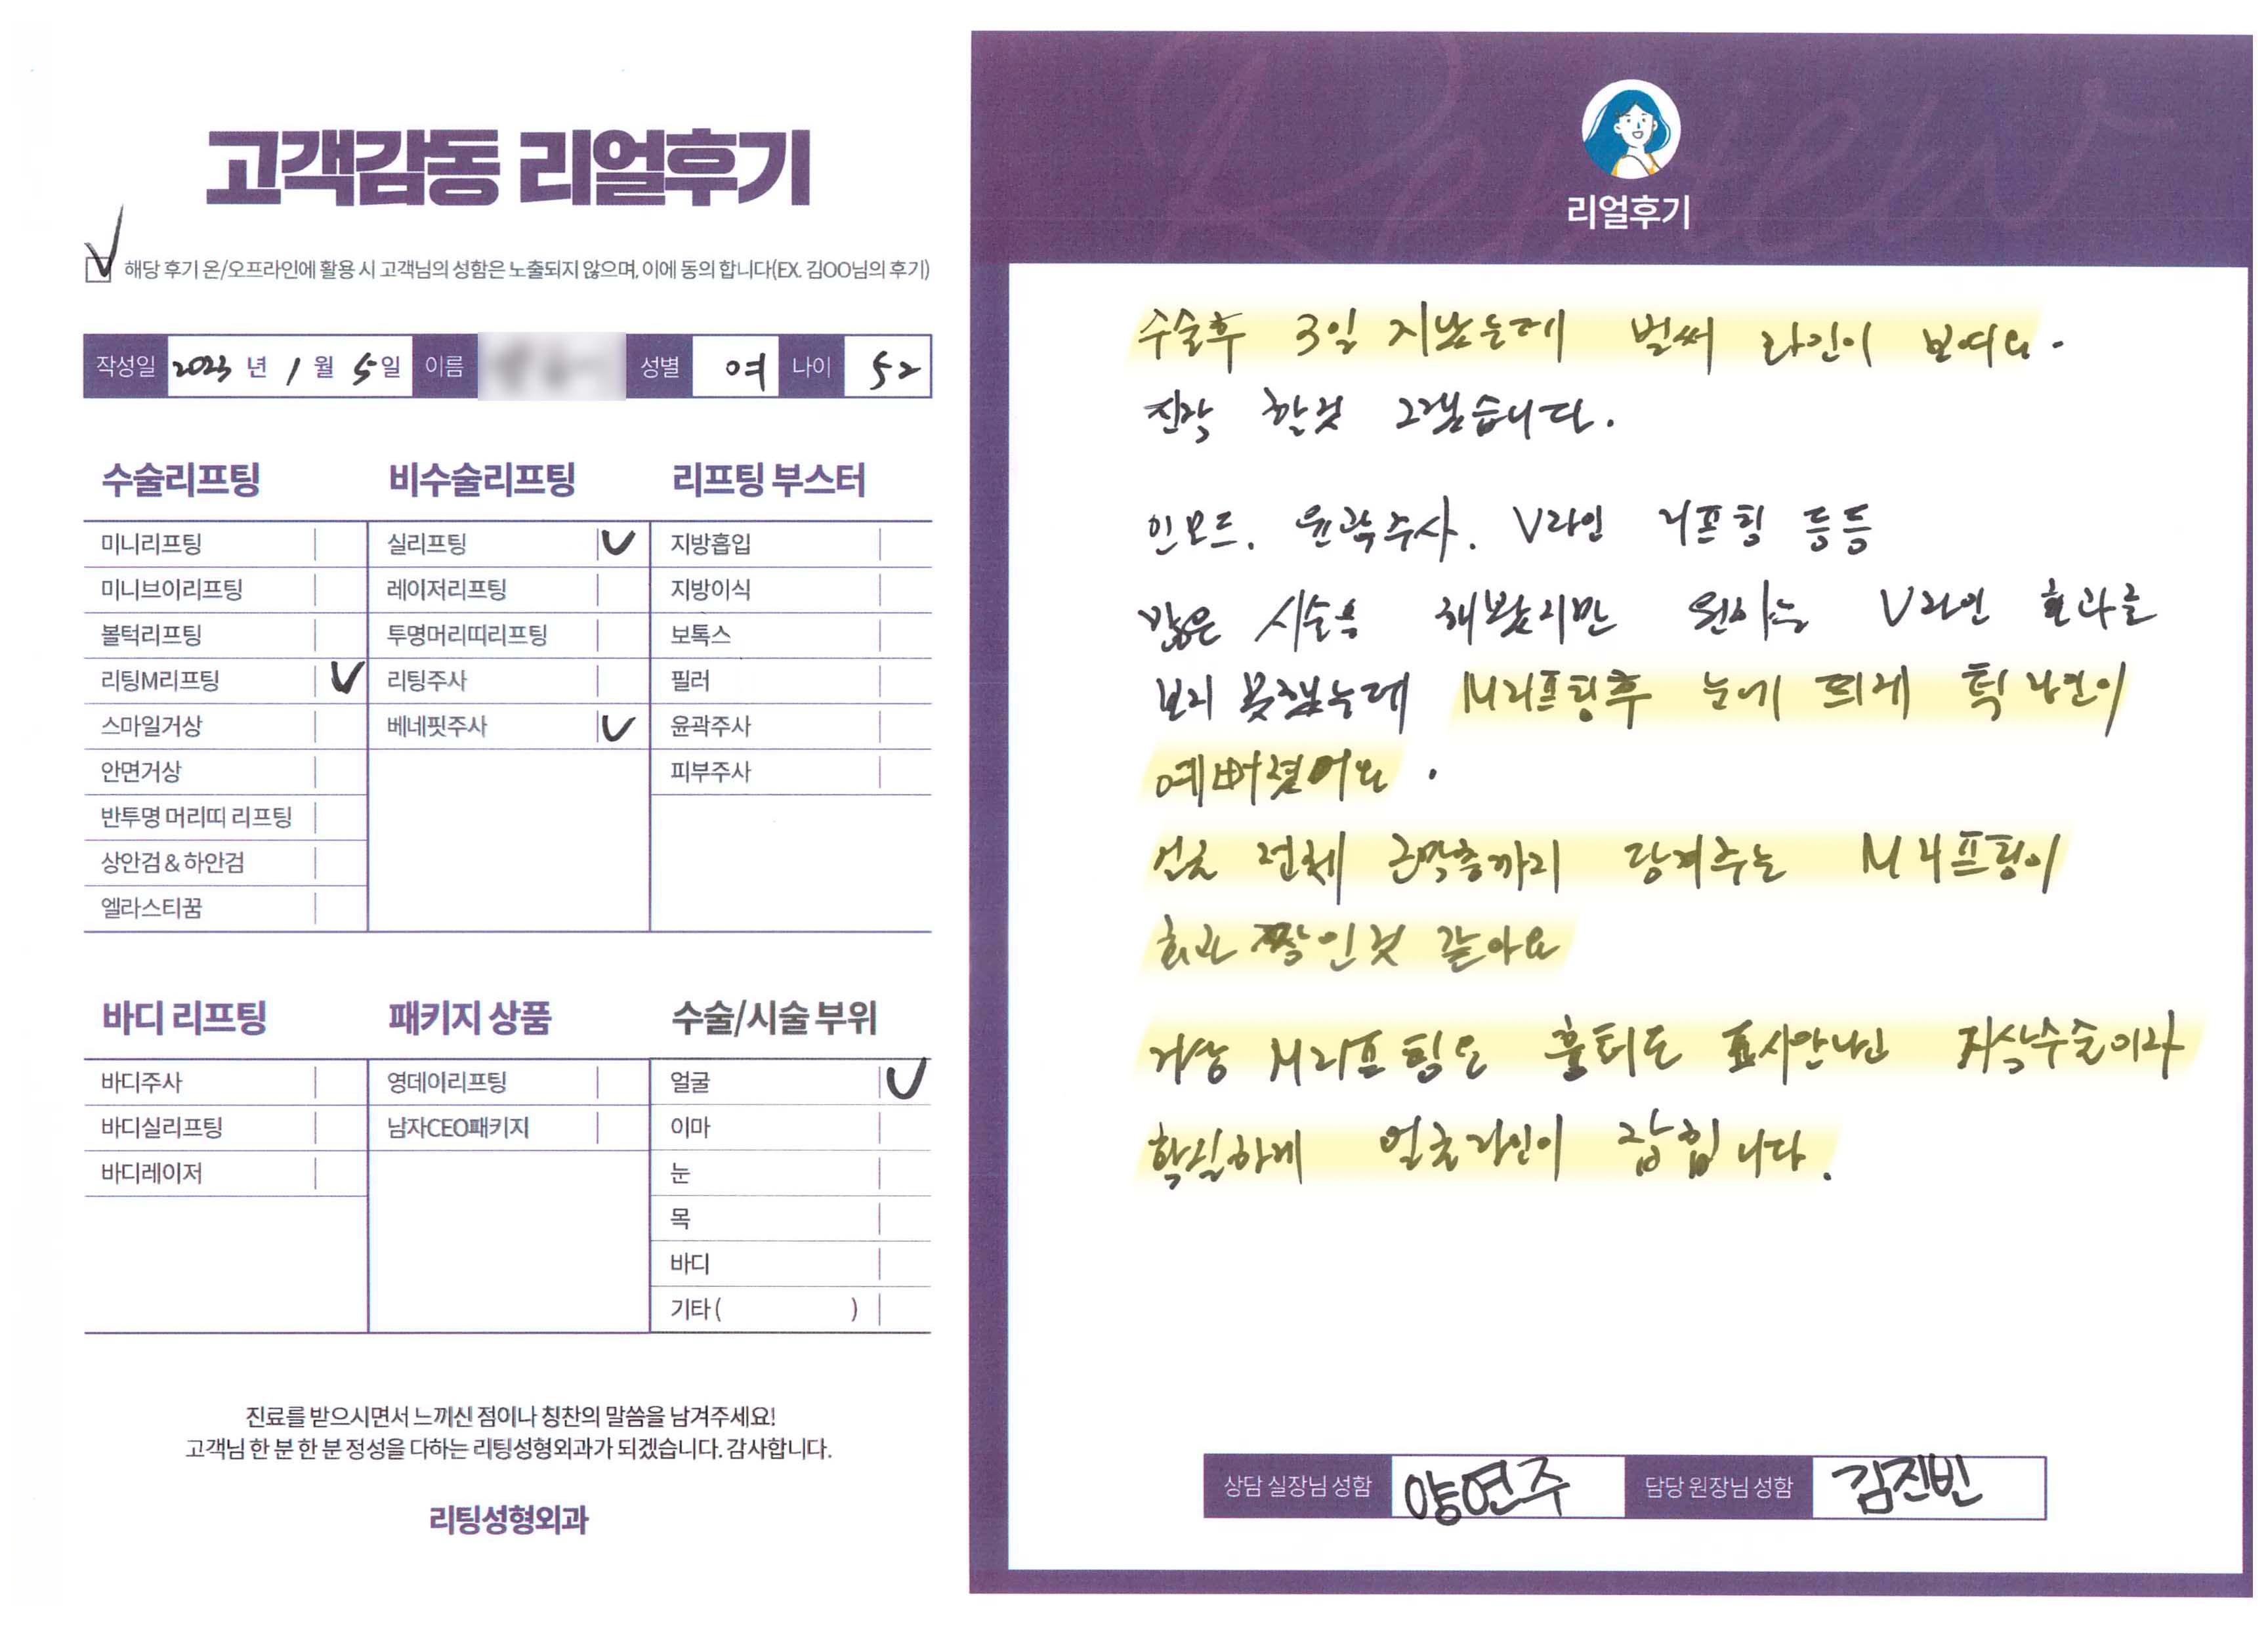 고객감동 리얼후기
해당 후기 온/오프라인에 활용 시 고객님의 성함은 노출되지 않으며, 이에 동의 합니다(EX. 김OO님의 후기)
작성일 2023 년 1 월 5 일 이름 성별 여 나이 52
수술리프팅
미니리프팅
미니브이리프팅
볼턱리프팅
리팅M리프팅
스마일거상
안면거상
반투명 머리띠 리프팅
상안검 & 하안검
엘라스티꿈
비수술리프팅
실리프팅
레이저리프팅
투명머리띠리프팅
리팅주사
베네핏주사
리프팅 부스터
지방흡입
지방이식
보톡스
필러
윤곽주사
피부주사
바디 리프팅
바디주사
바디실리프팅
바디레이저
패키지 상품
영데이리프팅
남자CEO패키지
수술/시술 부위
얼굴
이마
눈
목
바디
기타 ( )
진료를 받으시면서 느끼신 점이나 칭찬의 말씀을 남겨주세요!
고객님 한 분 한 분 정성을 다하는 리팅성형외과가 되겠습니다. 감사합니다.
리팅성형외과
Review
리얼후기
수술후 3일 지났는데 벌써 라인이 보여요.
진작 할것 그랬습니다.
인모드. 윤곽주사. V라인 리프팅 등등
많은 시술을 해봤지만 원하는 V라인 효과를
보지 못했는데 M리프팅후 눈에 띄게 턱라인이
예뻐졌어요.
얼굴 전체 근막층까지 당겨주는 M리프팅이
효과 짱인것 같아요
거상 M리프팅은 흉터도 표시안나는 수술이라
확실하게 얼굴라인이 잡힙니다.
상담 실장님 성함 양연주 담당 원장님 성함 김진빈